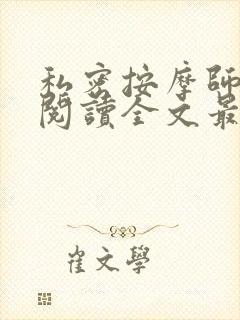 私密按摩師
閱讀全文最
崔文學